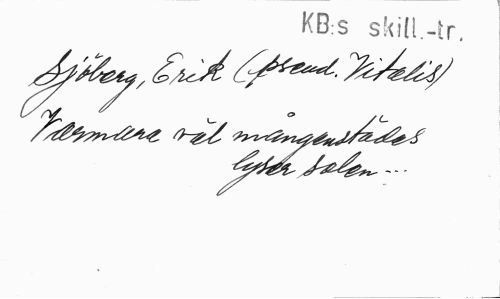 KB:s skill.-tr.
Sjöberg, Erik (pseud. Vitalis)
Varmare väl mångenstädes
lyser solen...